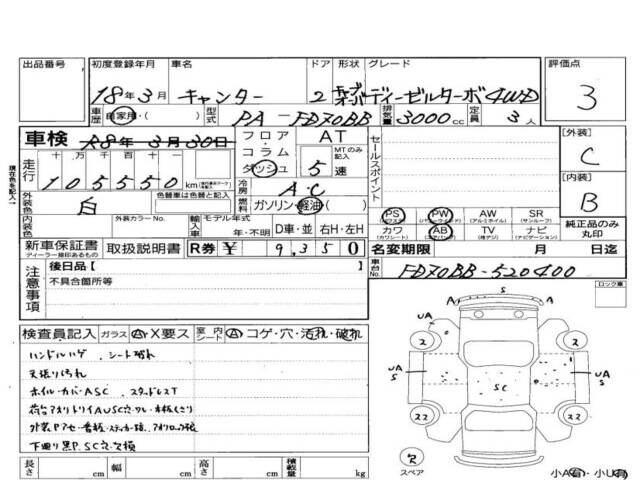 出品番号 初度登録年月 車名 ドア 形状 グレード 評価点
18年3月 キャンター 2 ディーゼルターボ4WD 3
車歴 自家用・( ) 型式 PA-FD70BB 排気量 3000cc 定員 3人
車検 R8年3月30日 フロア・コラム・ダッシュ AT MTのみ記入 5速 セールスポイント [外装] C
走行 十万 万 千 百 十 一
105550 km 冷房 AC [内装] B
外装色 白 色替車は色替と記入 燃料 ガソリン・軽油( )
内装色 外装カラーNo. 輸入車 モデル年式 年・不明 D車・並 右H・左H
現在色を記入
PS (パワステ) PW (パワーウィンド) AW (アルミホイル) SR (サンルーフ)
カワ (カワシート) AB (エアバック) TV (棒ナシ) ナビ (ナビゲーション) 純正品のみ丸印
新車保証書 ディーラー捺印あるもの 取扱説明書 R券 ¥ 9,350 名変期限 月 日迄
注意事項 後日品【 】 車台No. FD70BB-520400
不具合箇所等 ロック車
検査員記入 ガラス A・X要ス 室内シート A コゲ・穴・汚れ・破れ
ハンドルハゲ、シート破れ
天張り汚れ
ホイルカバーASC スタッドレスT
下回り黒P.SC穴欠損
長さ cm 幅 cm 高さ cm 積載量 kg
S
A A
UA A
2 2
UA S UA S
SC
22 22
欠
スペア 小A有・小U有